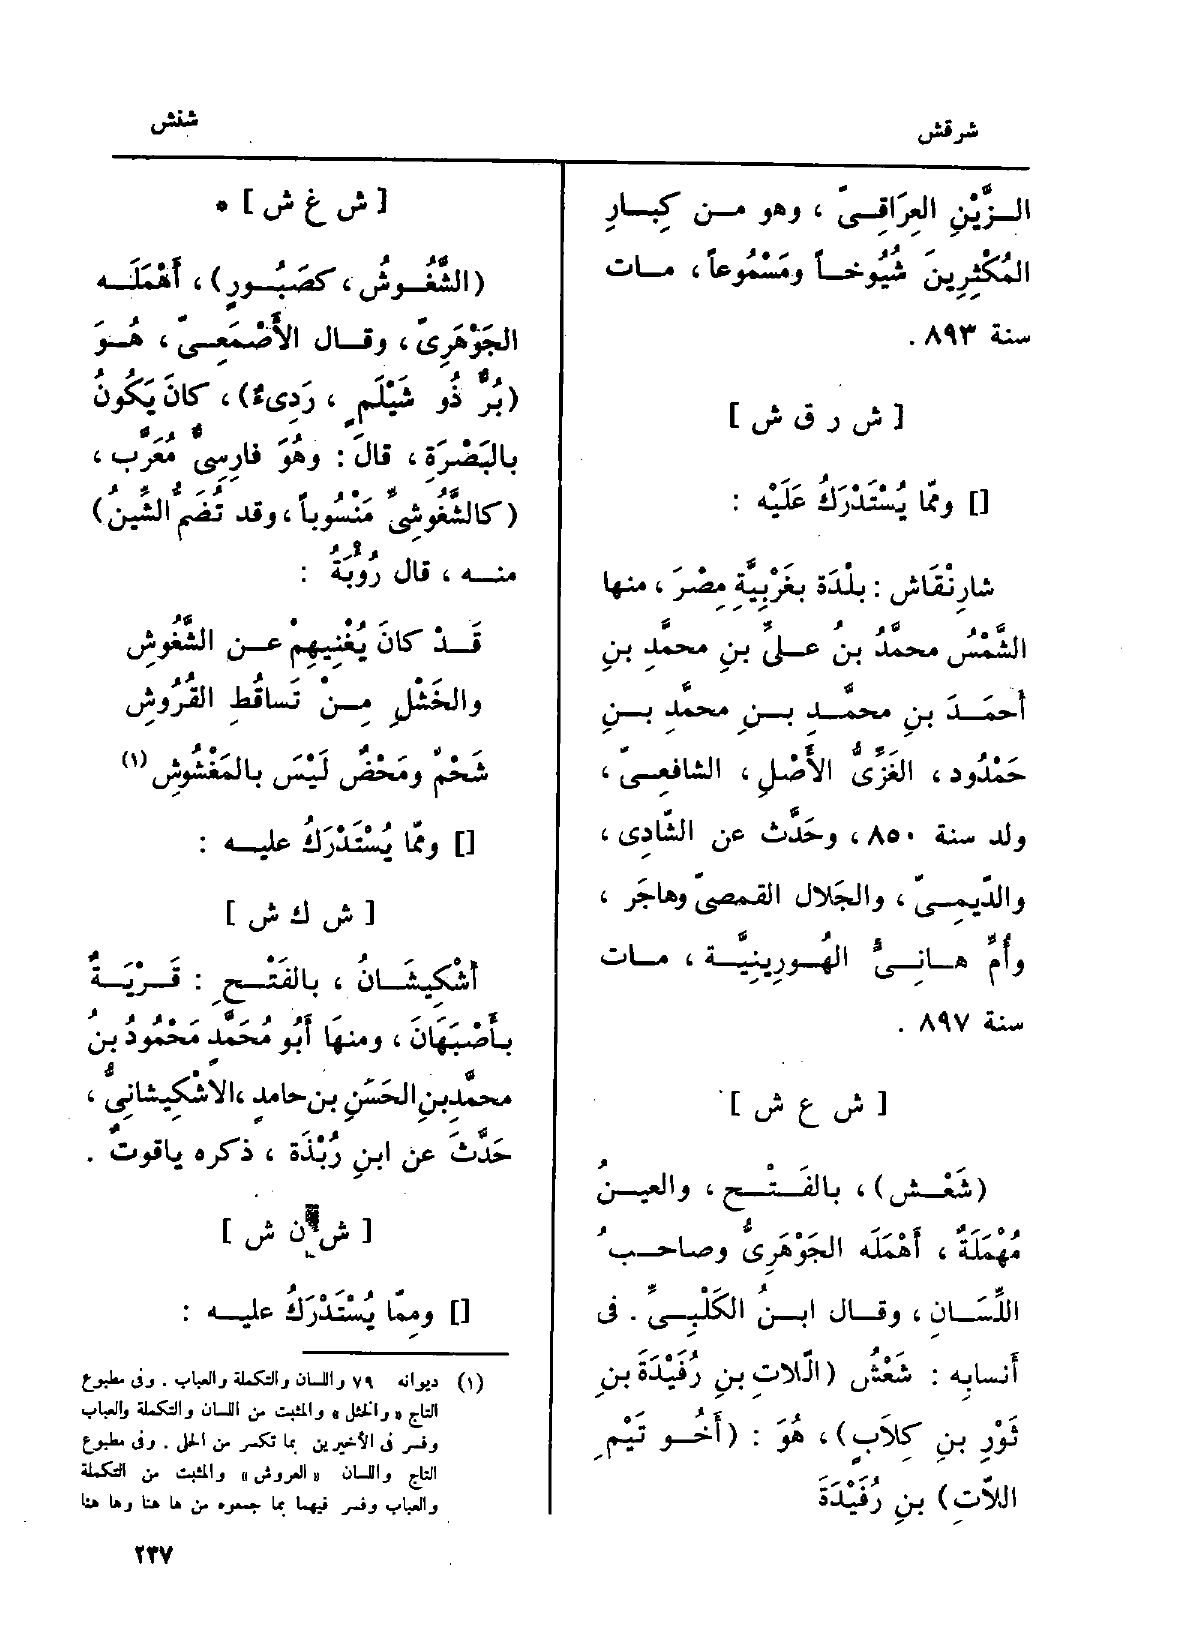 شرقش
شنش
الـزَّيْنِ العِرَاقِـىّ ، وهو مـن كِبـارِ
المُكْثِرِينَ شُيُوخـاً ومَسْمُوعاً ، مـات
سنة ٨٩٣ .
[ ش ر ق ش ]
[] وممّا يُسْتَدْرَكُ عَلَيْه :
شارِنْقَاش : بلْدَة بغَرْبِيَّةِ مِصْرَ ، منها
الشَّمْسُ محمَّدُ بنُ عـلىِّ بنِ محمَّدِ بنِ
أحمَـدَ بنِ محمَّـدِ بـنِ محمَّدِ بـنِ
حَمْدُود ، الغَزِّىُّ الأَصْلِ ، الشافعـىّ ،
ولد سنة ٨٥٠ ، وحَدَّث عن الشّادِى ،
والدِّيمـىّ ، والجَلال القمصىّ وهاجَر ،
وأُمِّ هـانِـىُّ الهُـورِينِيَّـة ، مـات
سنة ٨٩٧ .
[ ش ع ش ]
(شَعْـش) ، بالفَـتْـح ، والعيـنُ
مُهْمَلَةٌ ، أَهْمَلَه الجَوْهَرِىُّ وصاحـبُ
اللِّسَـان ، وقـال ابـنُ الكَلْبِـىِّ . فى
أنسابِه : شَعْشُ (الّلاتِ بنِ رُفَيْدَةَ بنِ
ثَوْرِ بنِ كِلاَبٍ) ، هُوَ : (أَخُـو تَيْمِ
اللاّتِ) بنِ رُفَيْدَةَ
[ ش غ ش ] *
(الشَّغُـوشُ ، كصَبُـورٍ) ، أَهْمَلَـه
الجَوْهَرِىّ ، وقـال الأَصْمَعِـىّ ، هُـوَ
(بُرٌّ ذُو شَيْلَمٍ ، رَدِىءٌ) ، كانَ يَكُونُ
بالبَصْرَةِ ، قالَ : وهُوَ فارِسِىٌّ مُعَرَّب ،
(كالشَّغُوشِىِّ مَنْسُوباً ، وقد تُضَمُّ الشِّينُ)
منـه ، قال رُؤْبَةُ :
قَـدْ كانَ يُغْنِيهِمْ عـن الشَّغُوشِ
والخَشْلِ مِـنْ تَساقُطِ القُرُوشِ
شَحْمٌ ومَحْضٌ لَيْسَ بالمَغْشُوشِ (١)
[] وممّا يُسْتَدْرَكُ عليـه :
[ ش ك ش ]
أشْكِيشَـانُ ، بالفَتْـحِ : قَـرْيَـةٌ
بـأَصْبَهَانَ ، ومنهَا أَبُو مُحَمَّدٍ مَحْمُودُ بنُ
محمَّدِ بنِ الحَسَنِ بن حامدٍ ، الاشْكِيشانِىُّ ،
حَدَّثَ عن ابنِ رُبْذَة ، ذكره ياقوتٌ .
[ ش ن ش ]
[] وممّا يُسْتَدْرَكُ عليـه :
(١) ديوانه ٧٩ واللسان والتكملة والعباب . وفى مطبوع
التاج « والخثل » والمثبت من اللسان والتكملة والعباب
وفسر فى الأخيرين بما تكسر من الحلى . وفى مطبوع
التاج واللسان « العروش » والمثبت من التكملة
والعباب وفسر فيهما بما جمعوه من ها هنا وها هنا
٢٣٧